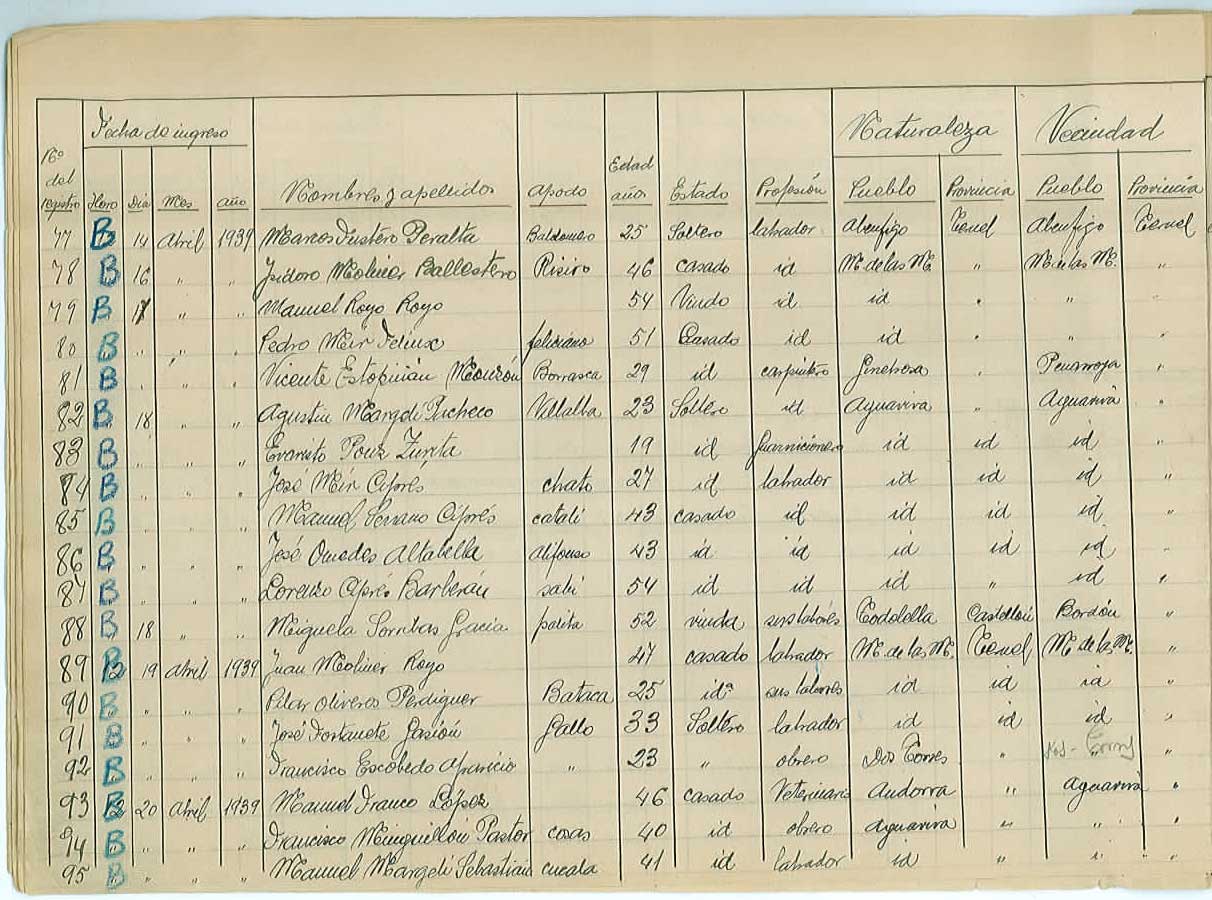 Fecha de ingreso Naturaleza Vecindad
Nº del registro Hora Dia Mes año Nombres y apellidos apodo Edad años Estado Profesión Pueblo Provincia Pueblo Provincia
77 B 14 Abril 1939 Marcos Fustero Peralta Baldomero 25 Soltero labrador Abenfigo Teruel Abenfigo Teruel
78 B 16 " " Isidoro Moliner Ballestero 46 casado id M. de las M. " M. de las M. "
79 B " " Manuel Royo Royo 54 Viudo id id " " "
80 B " " " Pedro Mir Feliux feliciano 51 Casado id id " "
81 B " " " Vicente Estopiñan Monzón Borrasca 29 id carpintero Ginebrosa " Penarroya "
82 B 18 " " Agustin Margeli Pacheco Villalba 23 Soltero id Aguaviva " Aguaviva "
83 B " " " Evaristo Pouz Zurita 19 id Guarnicionero id id id "
84 B " " " José Mir Ciprés chato 27 id labrador id id id "
85 B " " " Manuel Serrano Ciprés catali 43 casado id id id id "
86 B " " " José Omedes Altabella 43 id id id id id "
87 B " " " Lorenzo Ciprés Barberán sabi 54 id id id " id "
88 B 18 " " Miguela Sorribas Gracia 52 viuda sus labores Todolella Castellón Bordón "
89 B 19 Abril 1939 Juan Moliner Royo 47 casado labrador M. de las M. Teruel M. de las M. "
90 B " " " Pilar Oliveros Perdiguer Bataca 25 idª sus labores id id id "
91 B " " " José Fortanete Gasión Gallo 33 Soltero labrador id id id "
92 B " " " Francisco Escobedo Aparicio " 23 " obrero Dos Torres " Dos-Torres "
93 B 20 Abril 1939 Manuel Franco López 46 casado Veterinario Andorra " Aguaviva "
94 B " " " Francisco Minguillón Pastor cosas 40 id obrero Aguaviva " " "
95 B " " " Manuel Margeli Sebastian cucala 41 id labrador id " " "